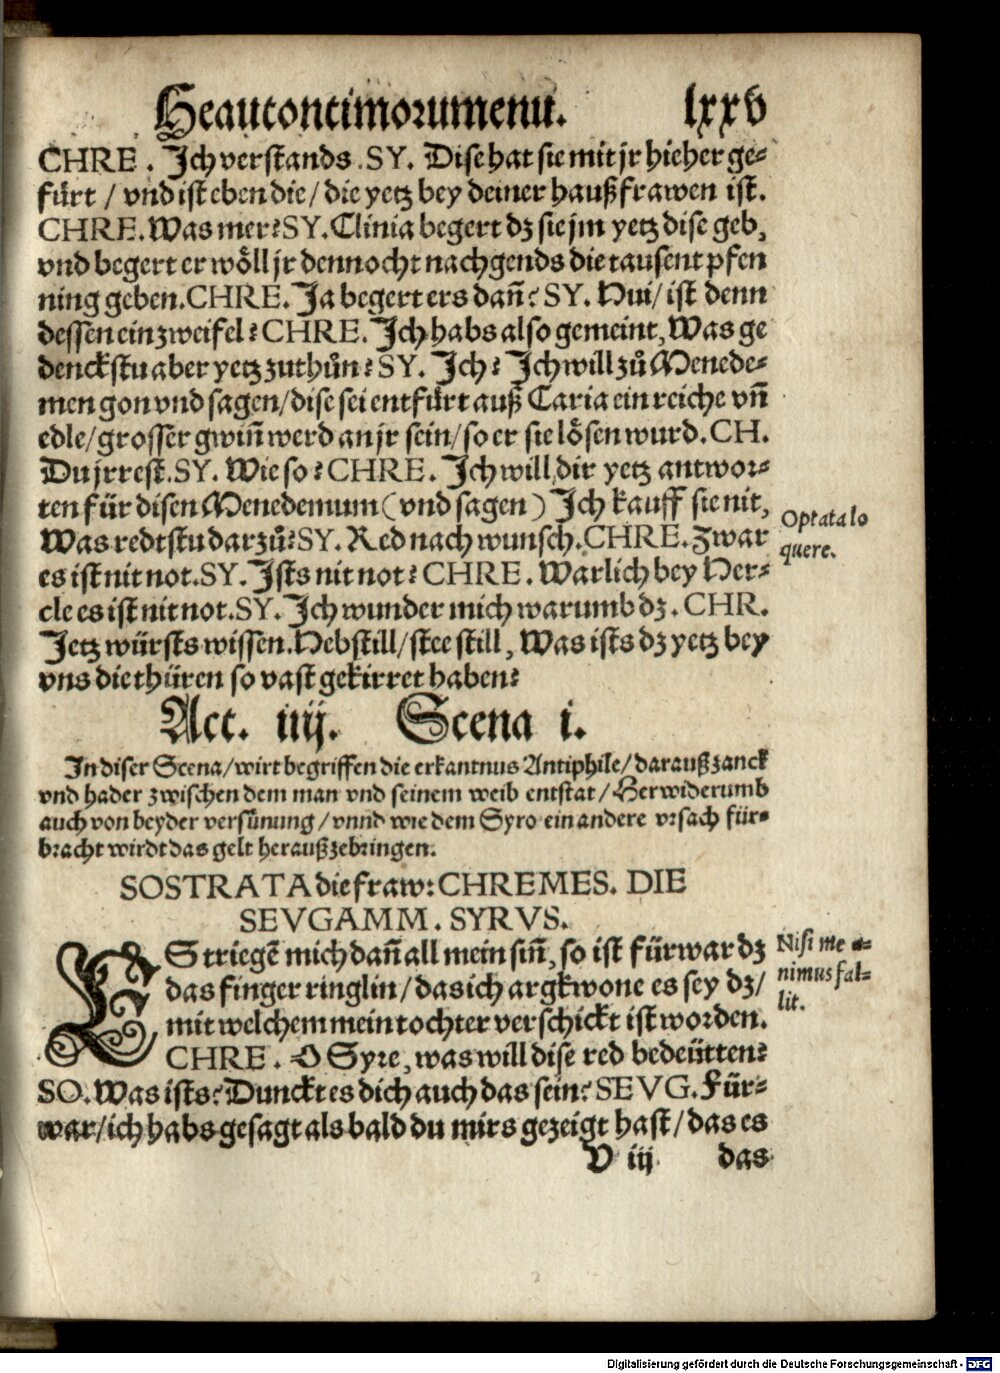 Heautontimorumenu. lxxv
CHRE. Ich verstands. SY. Dise hat sie mit jr hieher ge⸗
fürt / vnd ist eben die / die yetz bey deiner haußfrawen ist.
CHRE. Was mer? SY. Clinia begert dz sie jm yetz dise geb,
vnd begert er wöll jr dennocht nachgends die tausent pfen
ning geben. CHRE. Ja begert ers dañ? SY. Hui / ist denn
dessen ein zweifel? CHRE. Ich habs also gemeint, Was ge
denckstu aber yetz zuthůn? SY. Ich? Ich will zů Menede⸗
men gon vnd sagen / dise sei entfürt auß Caria ein reiche vñ
edle / grosser gwiñ werd an jr sein / so er sie lösen wurd. CH.
Du jrrest. SY. Wie so? CHRE. Ich will dir yetz antwor⸗
ten für disen Menedemum (vnd sagen) Ich kauff sie nit,
Was redtstu darzů? SY. Red nach wunsch. CHRE. Zwar
es ist nit not. SY. Ists nit not? CHRE. Warlich bey Her⸗
cle es ist nit not. SY. Ich wunder mich warumb dz. CHR.
Jetz würsts wissen. Hebstill / stee still, Was ists dz yetz bey
vns die thüren so vast gekirret haben?
Optata lo
quere.
Act. iiij. Scena i.
In diser Scena / wirt begriffen die erkantnus Antiphile / darauß zanck
vnd hader zwischen dem man vnd seinem weib entstat / Herwiderumb
auch von beyder versünung / vnnd wie dem Syro ein andere vrsach für⸗
bracht wirdt das gelt heraußzebringen.
SOSTRATA die fraw: CHREMES. DIE
SEVGAMM. SYRVS.
ES triegẽ mich dañ all mein siñ, so ist fürwar dz
das finger ringlin / das ich argkwone es sey dz /
mit welchem mein tochter verschickt ist worden.
CHRE. O Syre, was will dise red bedeütten?
SO. Was ists? Dunckt es dich auch das sein? SEVG. Für⸗
war / ich habs gesagt als bald du mirs gezeigt hast / das es
Nisi me a⸗
nimus fal⸗
lit.
V iij das
Digitalisierung gefördert durch die Deutsche Forschungsgemeinschaft - DFG